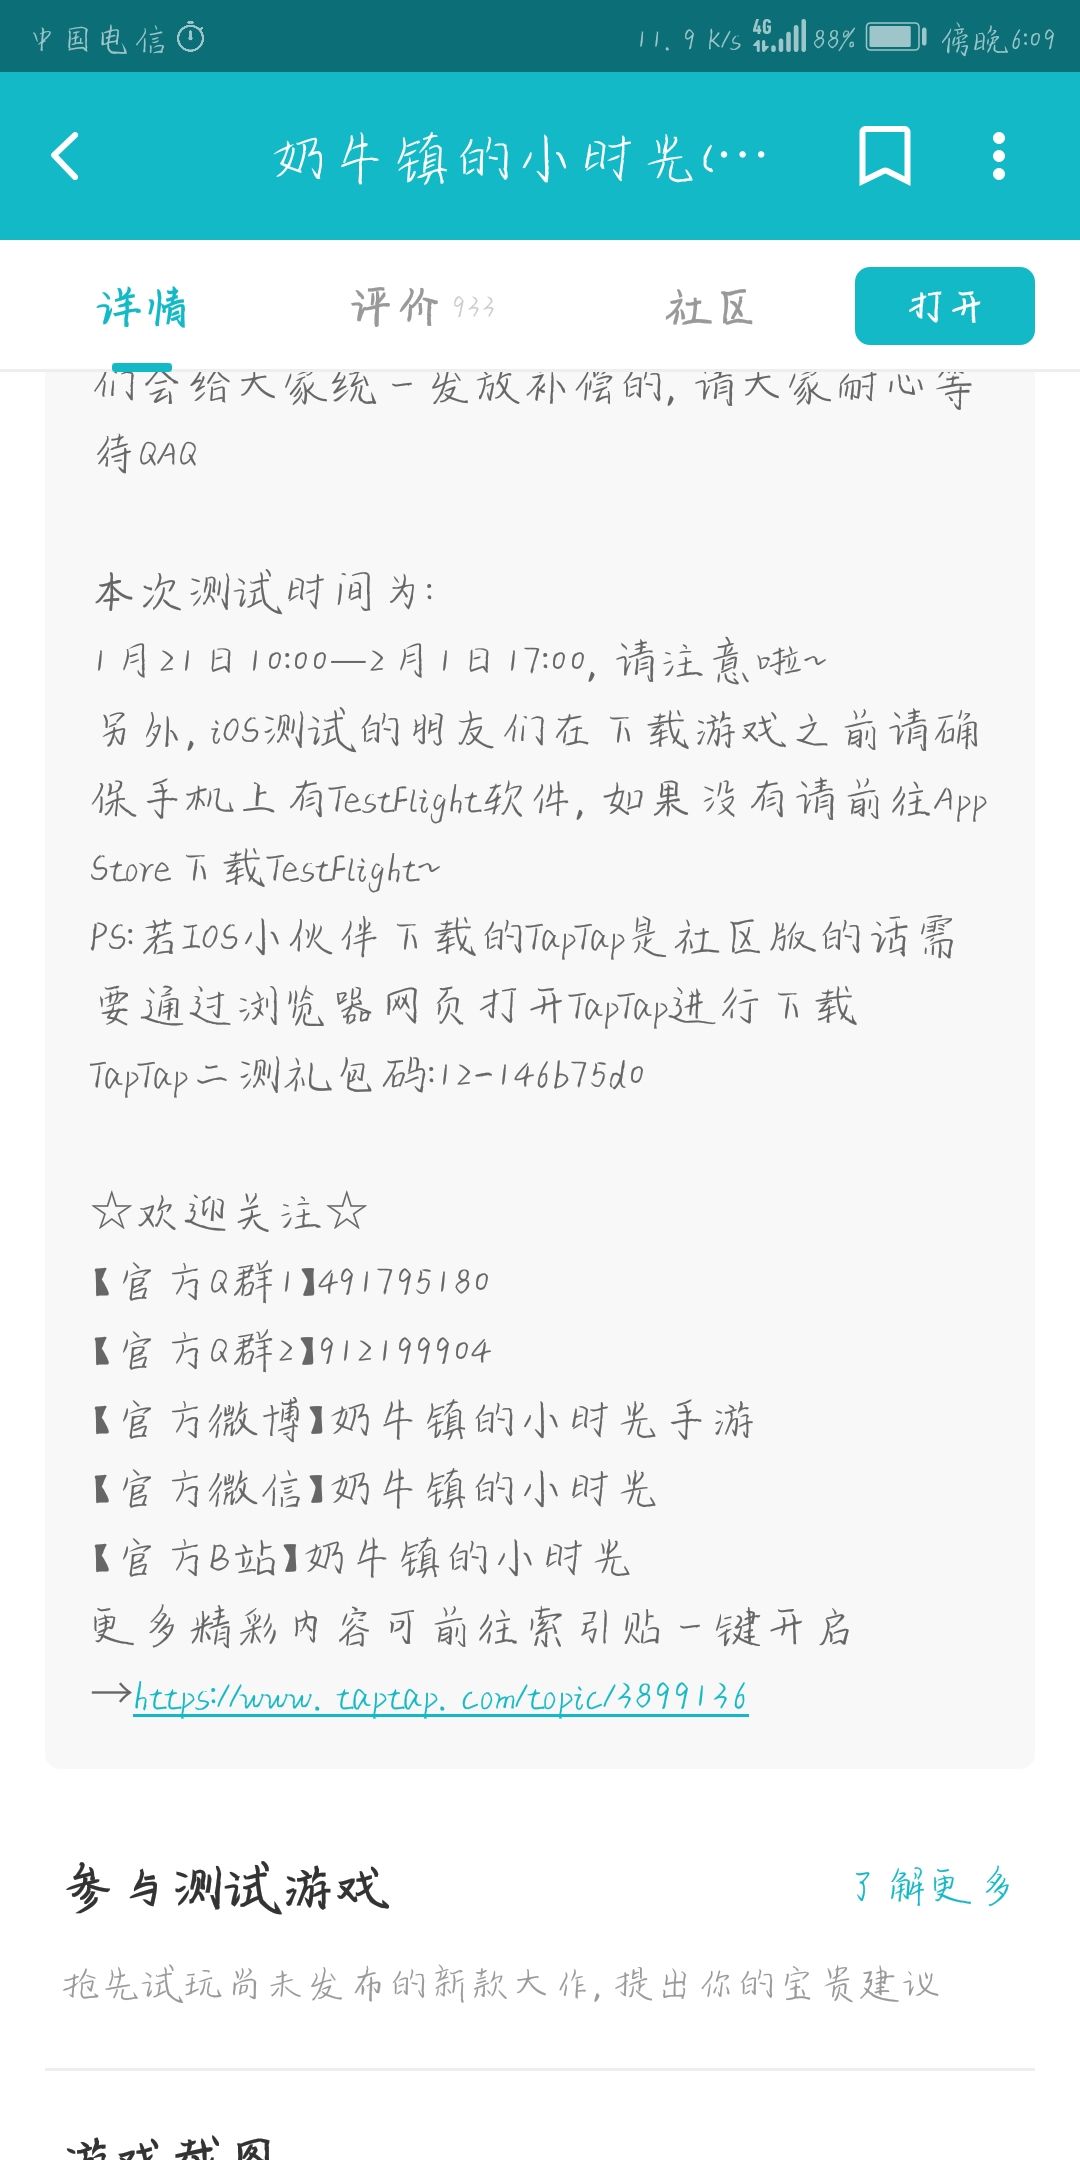 中国电信 11.9 K/s 4G 88% 傍晚6:09
奶牛镇的小时光(…
详情 评价 933 社区 打开
们会给大家统一发放补偿的,请大家耐心等
待QAQ
本次测试时间为:
1月21日10:00—2月1日17:00,请注意啦~
另外,iOS测试的朋友们在下载游戏之前请确
保手机上有TestFlight软件,如果没有请前往App
Store下载TestFlight~
PS:若IOS小伙伴下载的TapTap是社区版的话需
要通过浏览器网页打开TapTap进行下载
TapTap二测礼包码:12-146b75d0
☆欢迎关注☆
【官方Q群1】491795180
【官方Q群2】912199904
【官方微博】奶牛镇的小时光手游
【官方微信】奶牛镇的小时光
【官方B站】奶牛镇的小时光
更多精彩内容可前往索引贴一键开启
→https://www.taptap.com/topic/3899136
参与测试游戏 了解更多
抢先试玩尚未发布的新款大作,提出你的宝贵建议
游戏截图